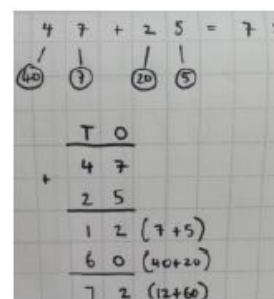 4 7 + 2 5 = 7
40 7 20 5
T O
4 7
+
2 5
1 2 (7+5)
6 0 (40+20)
7 2 (12+60)